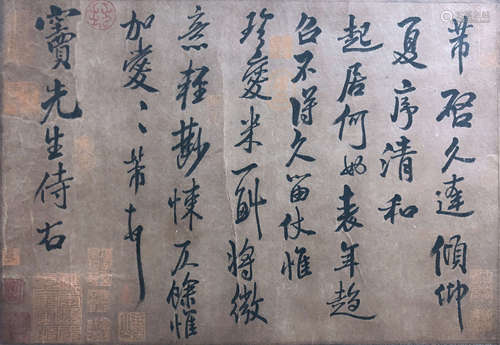 芾启久违倾仰
夏序清和
起居何如衰年趋
召不得久留伏惟
珍爱米一斛将微
意轻尠悚仄余惟
加爱〻芾顿首
窦先生侍右